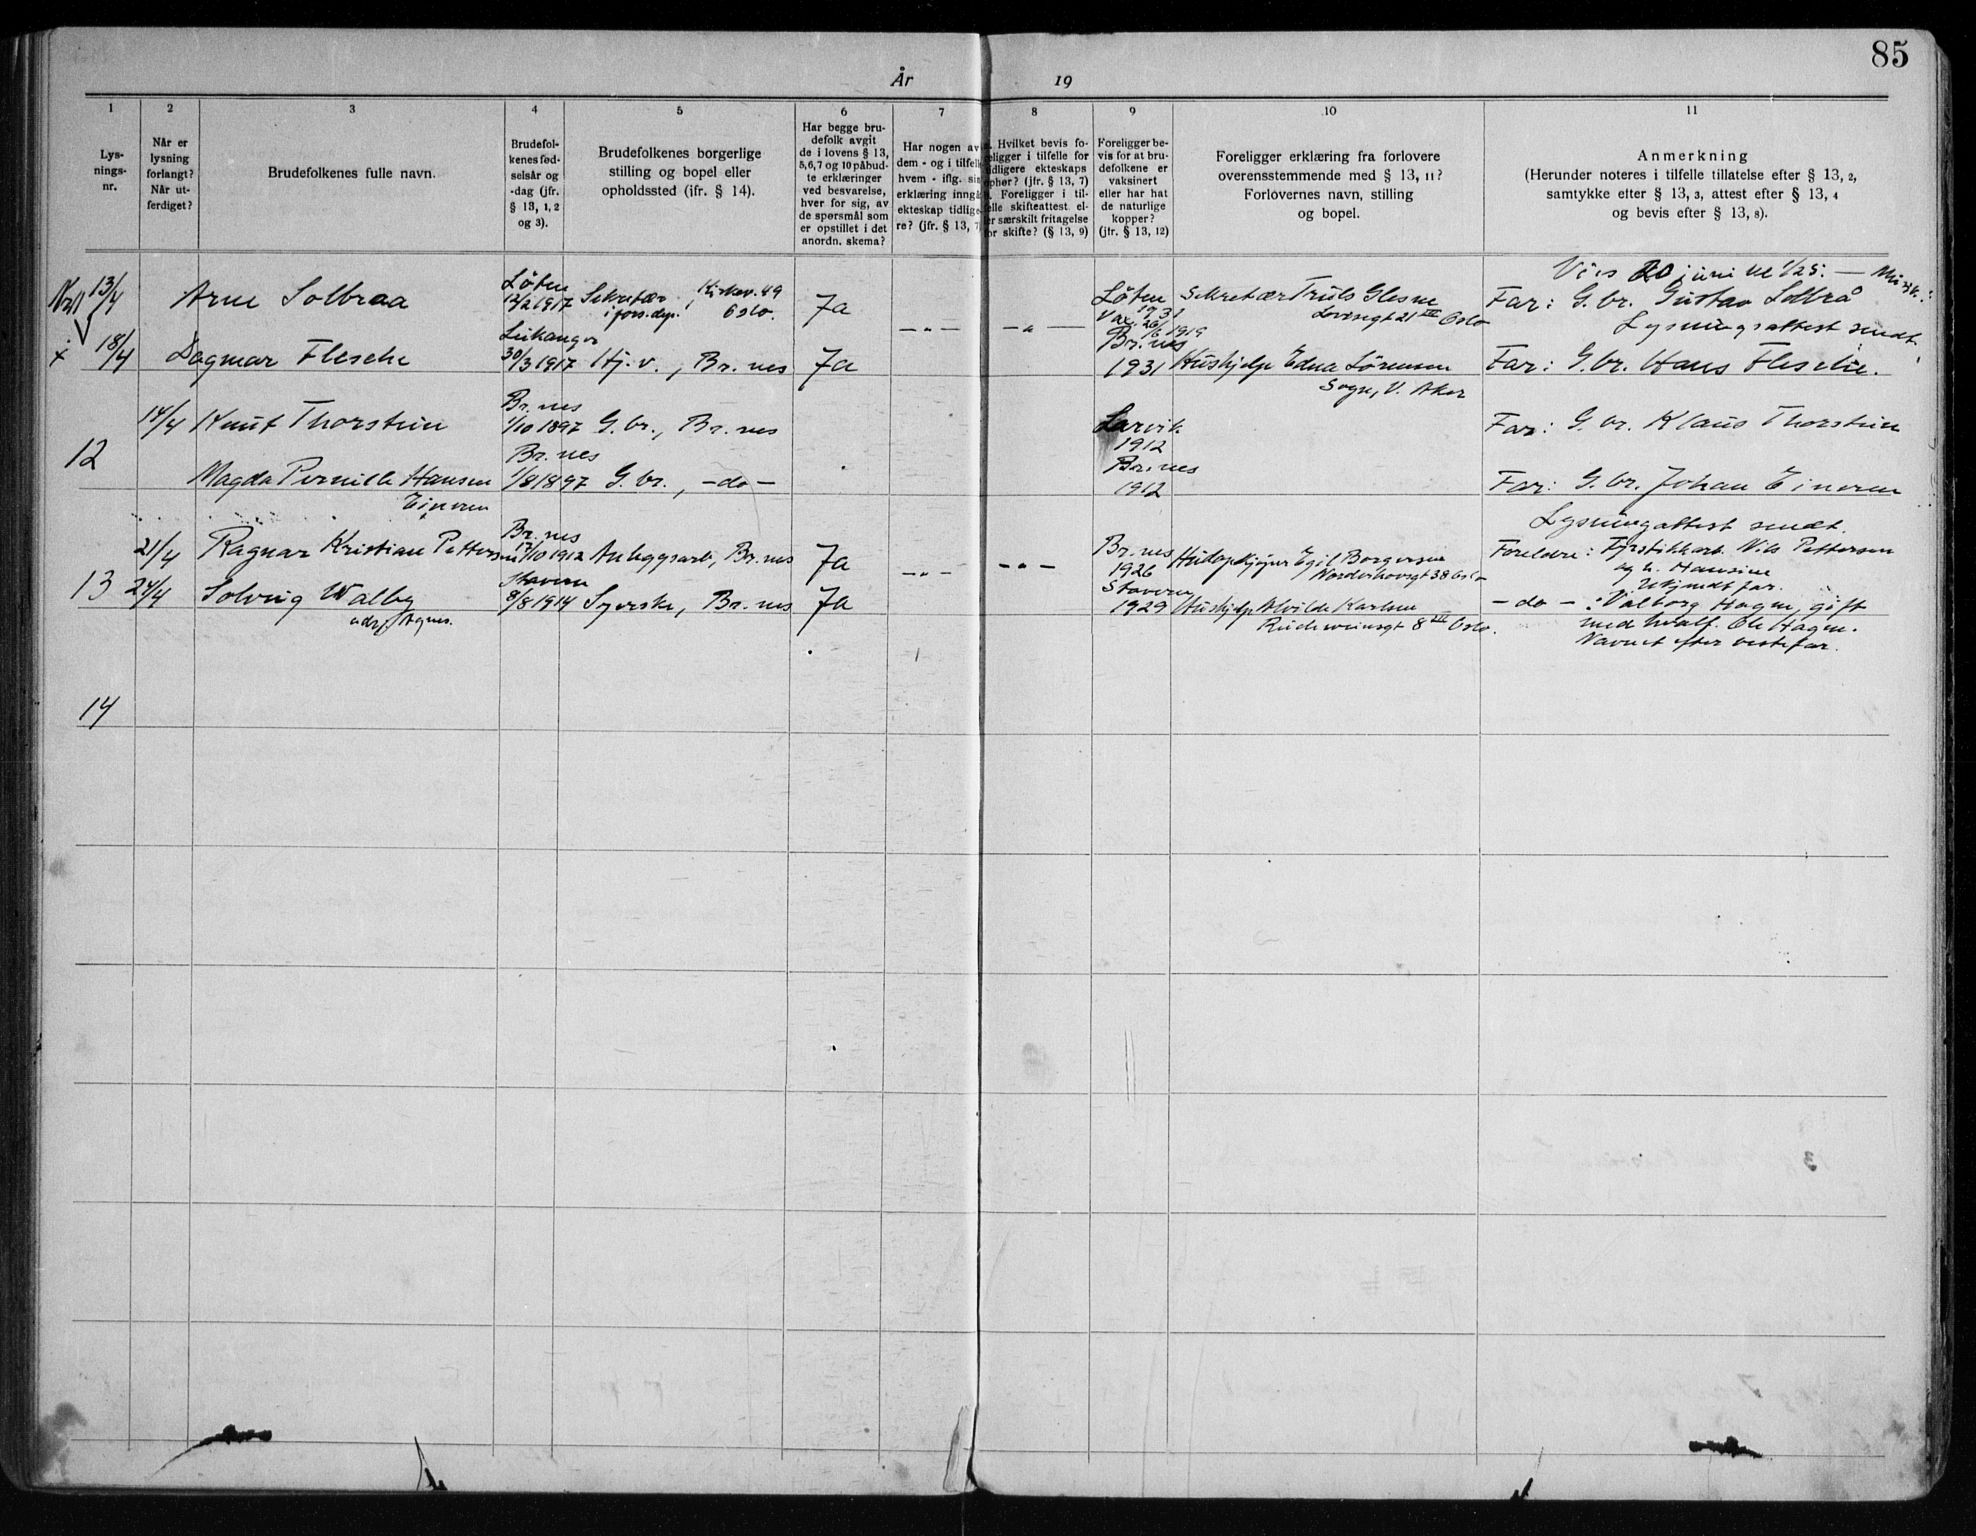 85
År 19
1 2 3 4 5 6 7 8 9 10 11
Lys-
nings-
nr.
Når er
lysning
forlangt?
Når ut-
ferdiget?
Brudefolkenes fulle navn.
Brudefol-
kenes fød-
selsår og
-dag (jfr.
§ 13, 1, 2
og 3).
Brudefolkenes borgerlige
stilling og bopel eller
opholdssted (jfr. § 14).
Har begge bru-
defolk avgit
de i lovens § 13,
5,6,7 og 10 påbud-
te erklæringer
ved besvarelse,
hver for sig, av
de spørsmål som
er opstillet i det
anordn. skema?
Har nogen av
dem - og i tilfelle
hvem - iflg. sin
erklæring inngå
ekteskap tidlige-
re? (jfr. § 13, 7)
Hvilket bevis fo-
religger i tilfelle for
tidligere ekteskaps
ophør? (jfr. § 13, 7)
Foreligger i til-
felle skifteattest el-
ler særskilt fritagelse
for skifte? (§ 13, 9)
Foreligger be-
vis for at bru-
defolkene er
vaksinert
eller har hat
de naturlige
kopper?
(jfr. § 13, 12)
Foreligger erklæring fra forlovere
overensstemmende med § 13, 11?
Forlovernes navn, stilling
og bopel.
Anmerkning
(Herunder noteres i tilfelle tillatelse efter § 13, 2,
samtykke efter § 13, 3, attest efter § 13, 4
og bevis efter § 13, 8).
Vies 20 juni kl 1/25: —
Nr 11 13/4 Arne Solbraa
Løten
12/2 1917 Sekretær i fors.dep., Kirkev. 49 Oslo. Ja — " — — " —
Løten
1931
Sekretær Truls Glesne
Lovisegt 21 III Oslo
Far: G.br. Gustav Solbrå
Lysningsattest sendt.
x 18/4 Dagmar Flesche
Leikanger
30/3 1917 Hj.v., Br.nes Ja
Vax. 26/6 1919
Br.nes
1931 Hushjelp Edna Sørensen
Sogn, V. Aker
Far: G.br. Hans Flesche.
12 14/4 Knut Thorstein
Br.nes
1/10 1897 G.br., Br.nes
Larvik
1912
Far: G.br. Klaus Thorstein
Magda Pernille Hansen
Einoren
Br.nes
1/8 1897 G.br., -do-
Br.nes
1912
Far: G.br. Johan Einoren
Lysningattest sendt.
13 21/4 Ragnar Kristian Pettersen
Br.nes
17/10 1912 Anleggsarb, Br.nes Ja — " — — " —
Br.nes
1926
Egil Borgersen
Norderhovsgt 38 Oslo
Foreldre: Fyrstikkarb. Nils Pettersen
og h. Hansine
Ukjendt far.
24/4 Solveig Walby
Agnes.
Stavern
8/8 1914 Syerske, Br.nes Ja
Stavern
1929 Hushjelp Alvilde Karlsen
8 III Oslo.
-do-: Valborg Hagen, gift
med hvalf. Ole Hagen.
Navnet efter bestefar.
14